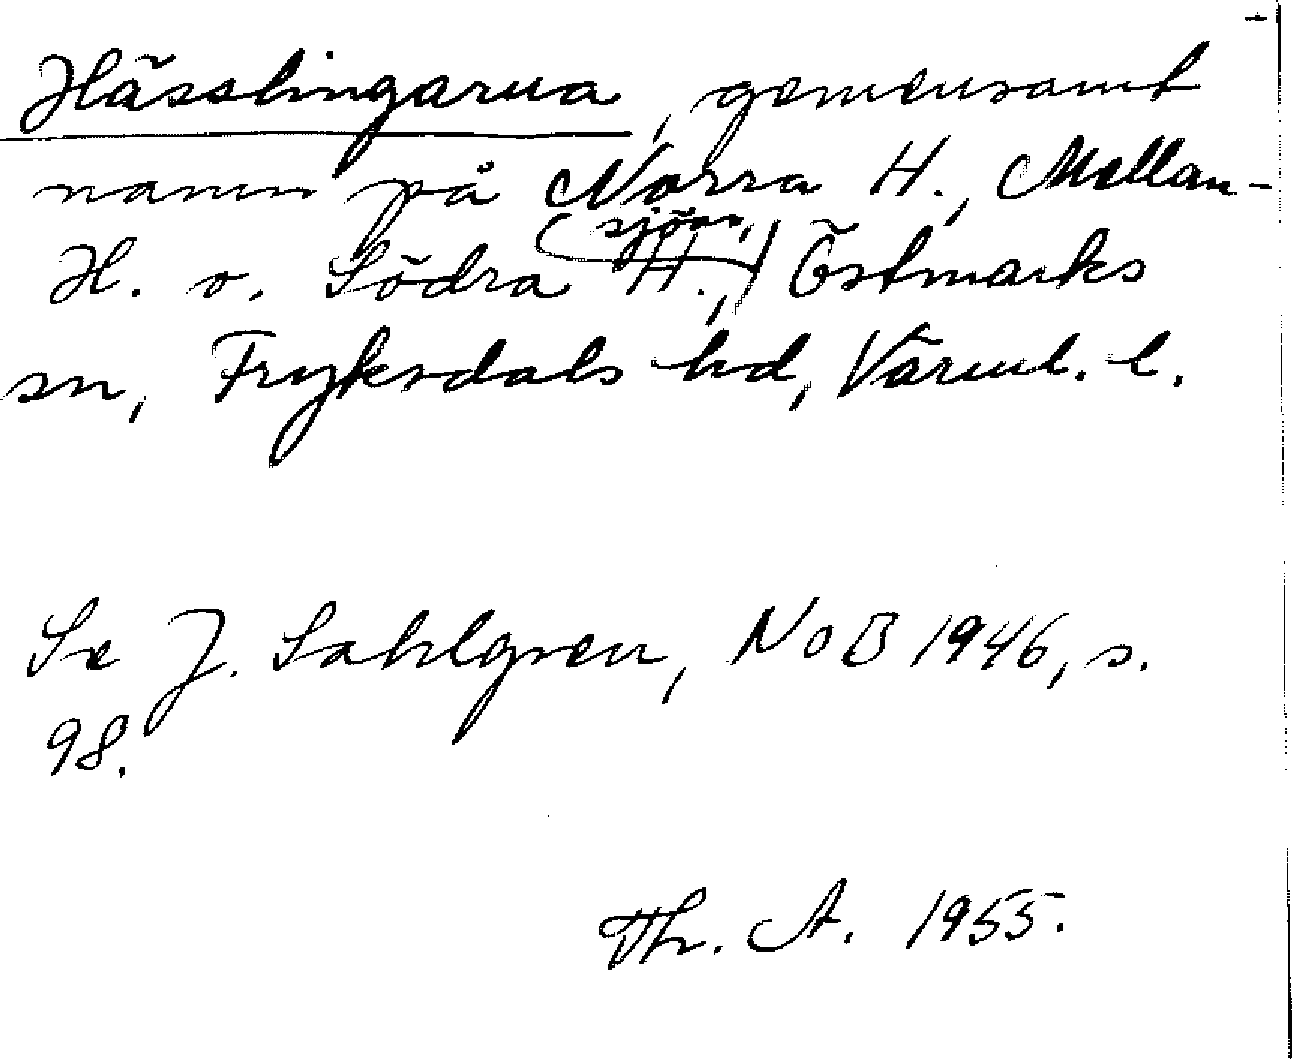 Hässlingarna, gemensamt
namn på Norra H., Mellan-
H. o. Södra H., (sjöar,) Östmarks
sn, Fryksdals hd, Värml. l.
Se J. Sahlgren, NoB 1946, s.
98.
Th. A. 1955.